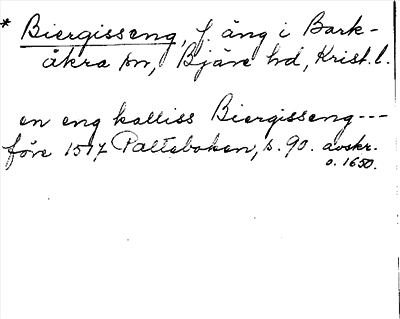 * Biergisseng, f. äng i Bark-
åkra sn, Bjäre hd, Krist. l.
en eng kalliss Biergisseng ---
före 1517 Palteboken, s. 90. avskr.
o. 1650.